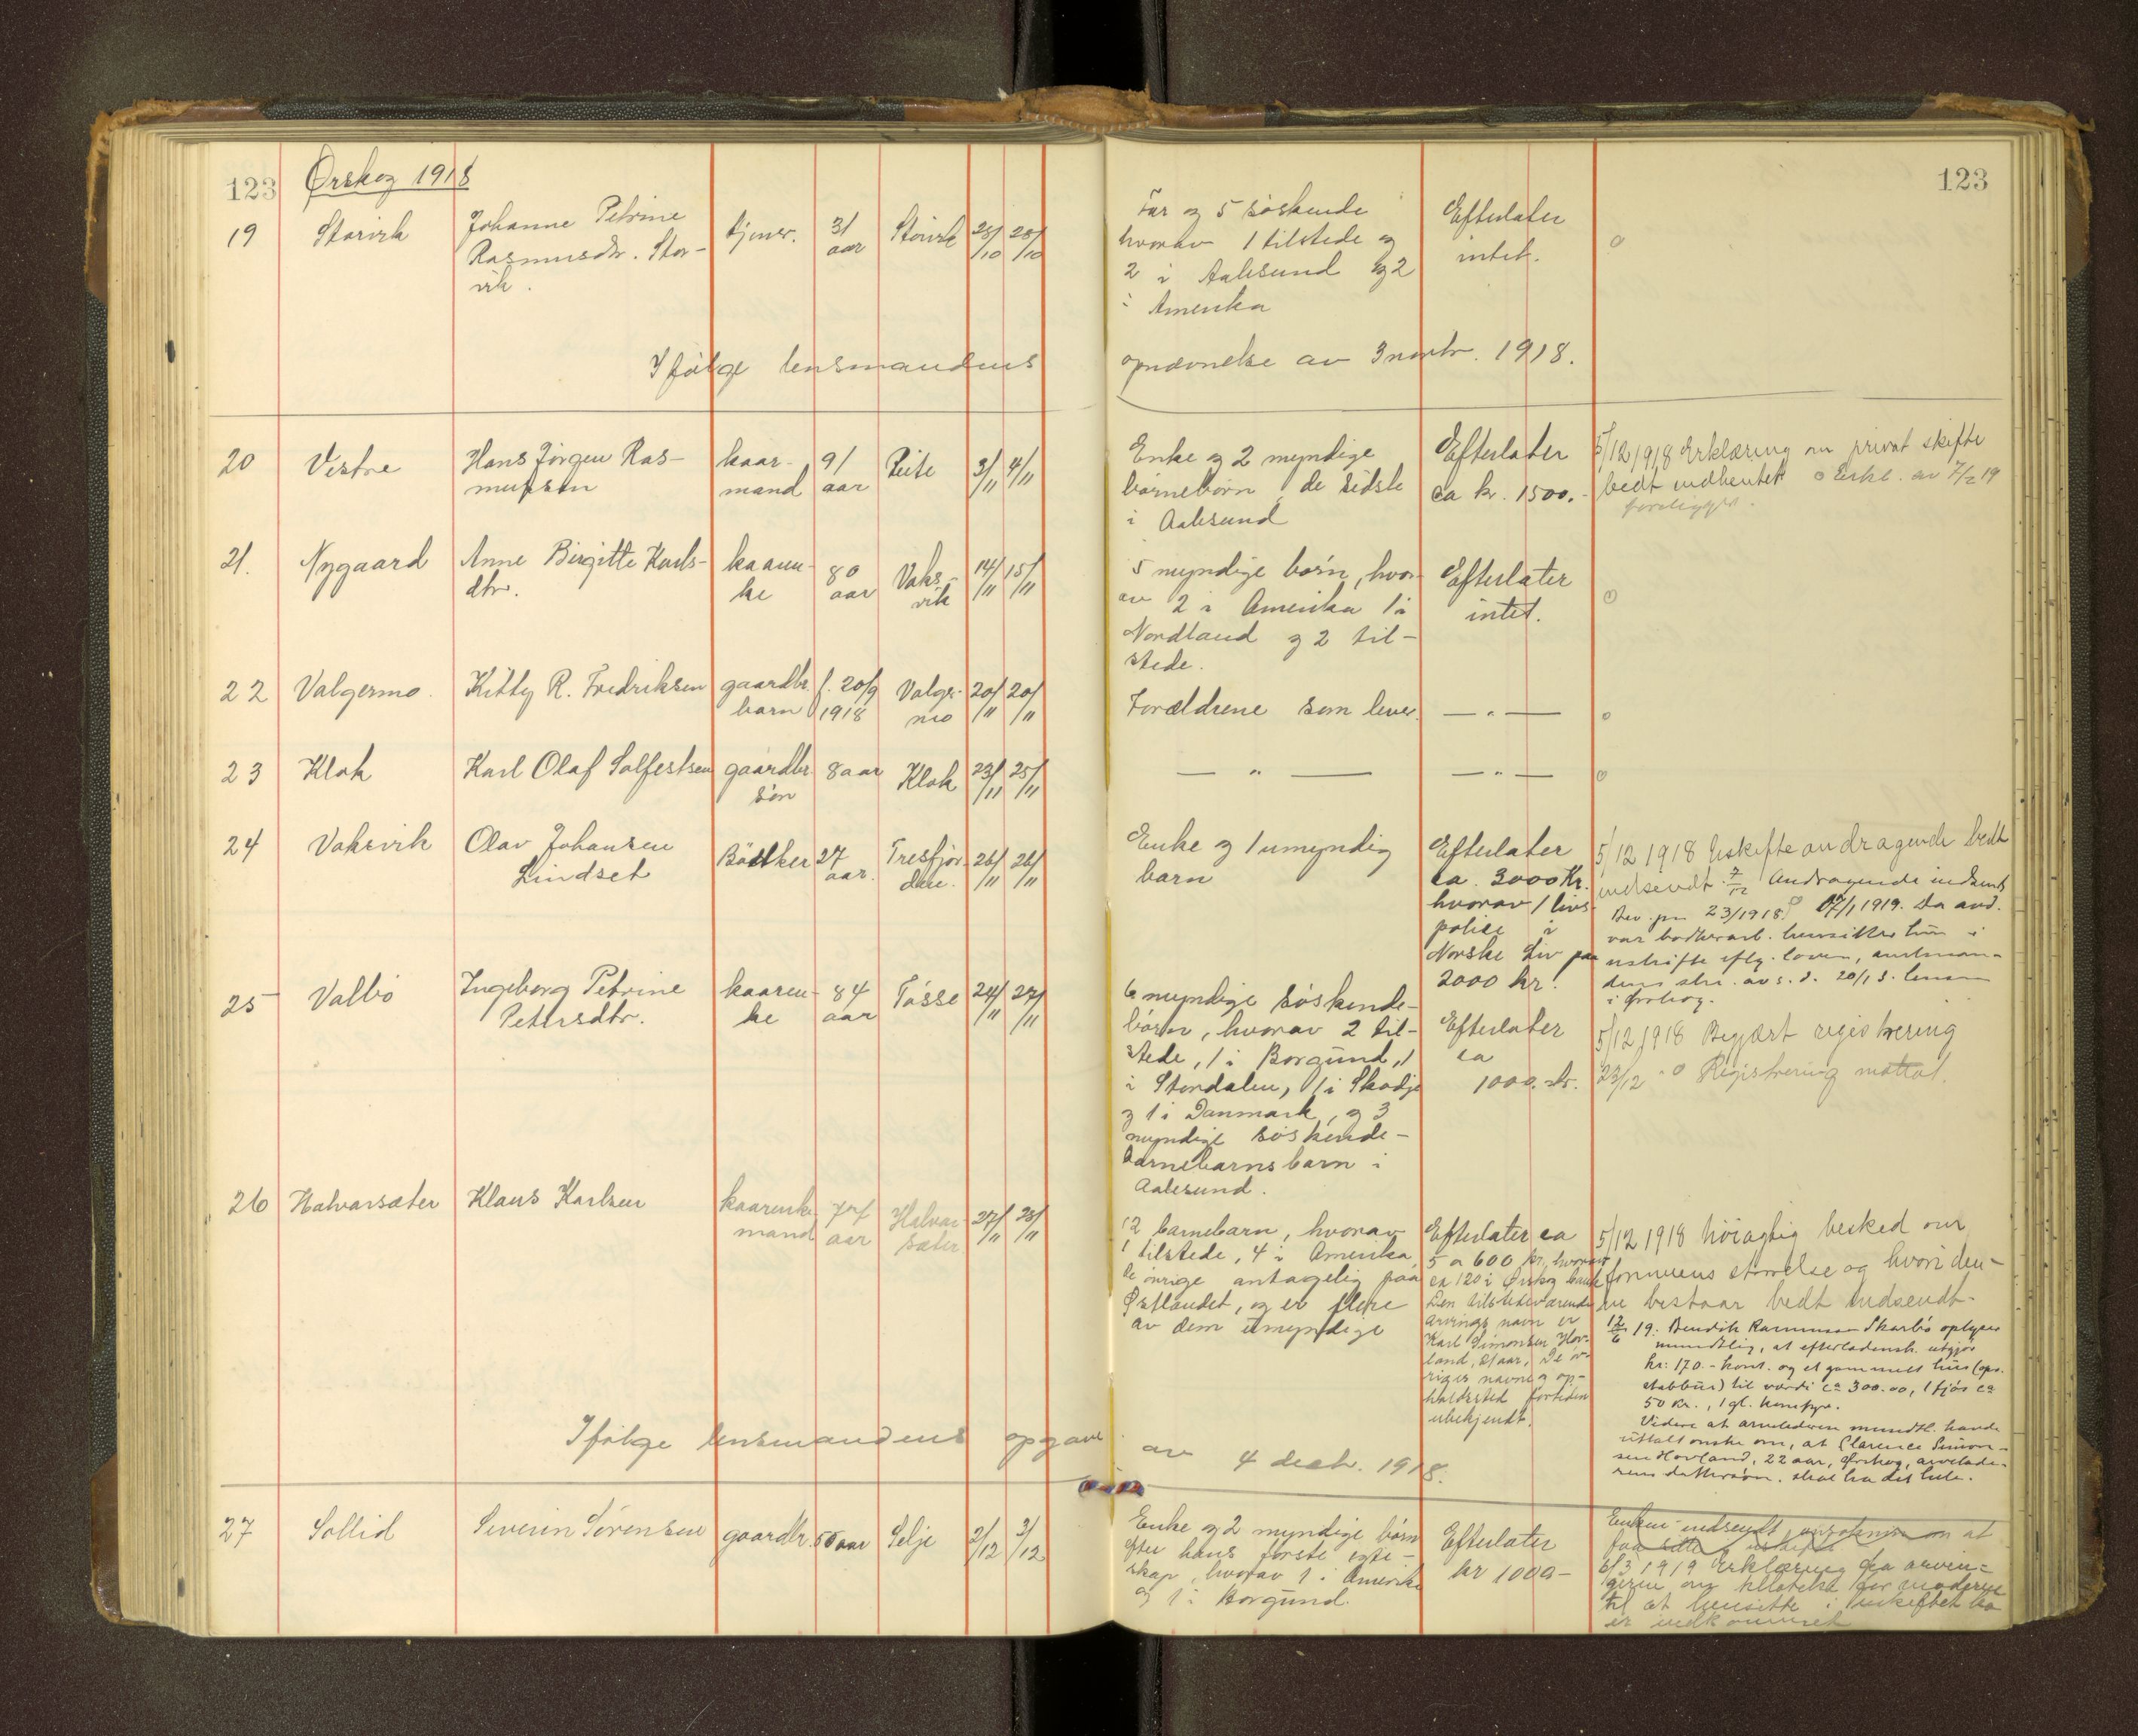 123 Ørskog 1918 123
19 Storvik Johanne Petrine tjener. 31 Storvik 28/10 28/10 Far og 5 søskende Efterlater
Rasmusdtr. Stor- aar hvorav 1 tilstede og intet. o
vik. 2 i Aalesund og 2
i Amerika
Ifølge lensmandens opnævnelse av 3 novbr. 1918.
20 Vestre Hans Jørgen Ras- kaar- 91 3/11 4/11 Enke og 2 myndige Efterlater 5/12 1918 Erklæring om privat skifte
mussen mand aar børnebørn, de sidste ca kr. 1500.- bedt indhentet o Erkl. av 7/2 19
i Aalesund foreligger.
21. Nygaard Anne Birgitte Karls- kaaren- 80 Vaks- 14/11 15/11 5 myndige børn, hvor- Efterlater
dtr. ke aar vik av 2 i Amerika 1 i intet. o
Nordland og 2 til-
stede.
22 Valgermo Kitty R. Fredriksen gaardbr. f. 20/9 Valger- 20/11 20/11 Forældrene som lever. — " — o
barn 1918 mo
23 Klok Karl Olaf Solfestsen gaardbr. 8 aar Klok 23/11 25/11 — " — — " — o
søn
24 Vaksvik Olav Johansen Bødtker 27 Tresfjor- 26/11 26/11 Enke og 1 umyndig Efterlater 5/12 1918 Uskifteandragende bedt
Lindset aar. den. barn ca. 3000 Kr. indsendt. 7/12 Andragende indsendt
hvorav 1 livs- 23/1918 1919. Da avd.
police i var
Norske Liv paa uskifte loven,
2000 kr.
25 Valbø Ingeborg Petrine kaaren- 84 Tøsse 24/11 27/11 6 myndige søskende- i Ørskog.
Petersdtr. ke aar børn, hvorav 2 til- Efterlater 5/12 1918 Begjært registrering
stede, 1 i Borgund, 1 ca 23/12 o Registrering mottat.
i Stordalen, 1 i Skodje 1000. kr.
og 1 i Danmark, og 3
myndige søskende-
barnebarnsbarn i
Aalesund.
26 Halvarsæter Klaus Karlsen mand aar Halvar- 27/11 28/11 12 barnebarn, hvorav Efterlater ca 5/12 1918 Nøiagtig besked om
sæter 1 tilstede, 4 i Amerika, 5 a 600 kr, hvorav formuens størrelse og hvori den-
de øvrige antagelig paa ca 120 i Ørskog bank ne bestaar bedt indsendt.
Østlandet, og er flere Den tilstedeværende
av dem umyndige arvings navn er
Karl Simonsen Hov- 12/6 19. Bendik Rasmussen Skarbø oplyser
land, 21 aar, De øv- mundtlig, at efterladensk. utgjør
riges navne og op- kr: 170.- kont. og et gammelt hus (ops.
holdssted fortiden stabbur) til værdi ca 300.00, 1 fjøs ca
ubekjendt. 50 kr., 1 gl.
Videre at arveladeren mundtl. havde
uttalt ønske om, at Clarence Simon-
sen Hovland, 22 aar, Ørskog, arvelade-
rens dattersøn, skal ha det hele.
Ifølge lensmandens opgave av 4 decb. 1918.
27 Sollid Severin Sørensen gaardbr. aar Selje 2/12 3/12 Enke og 2 myndige børn Efterlater Enken indsendt ansøkning om at
efter hans første egte- kr 1000- faa sitte i uskifte
skap, hvorav 1 i Amerika 1919 Erklæring fra arvin-
og 1 i Borgund. gerne om tillatelse for moderen
til at hensitte i uskiftet bo
er indkommet